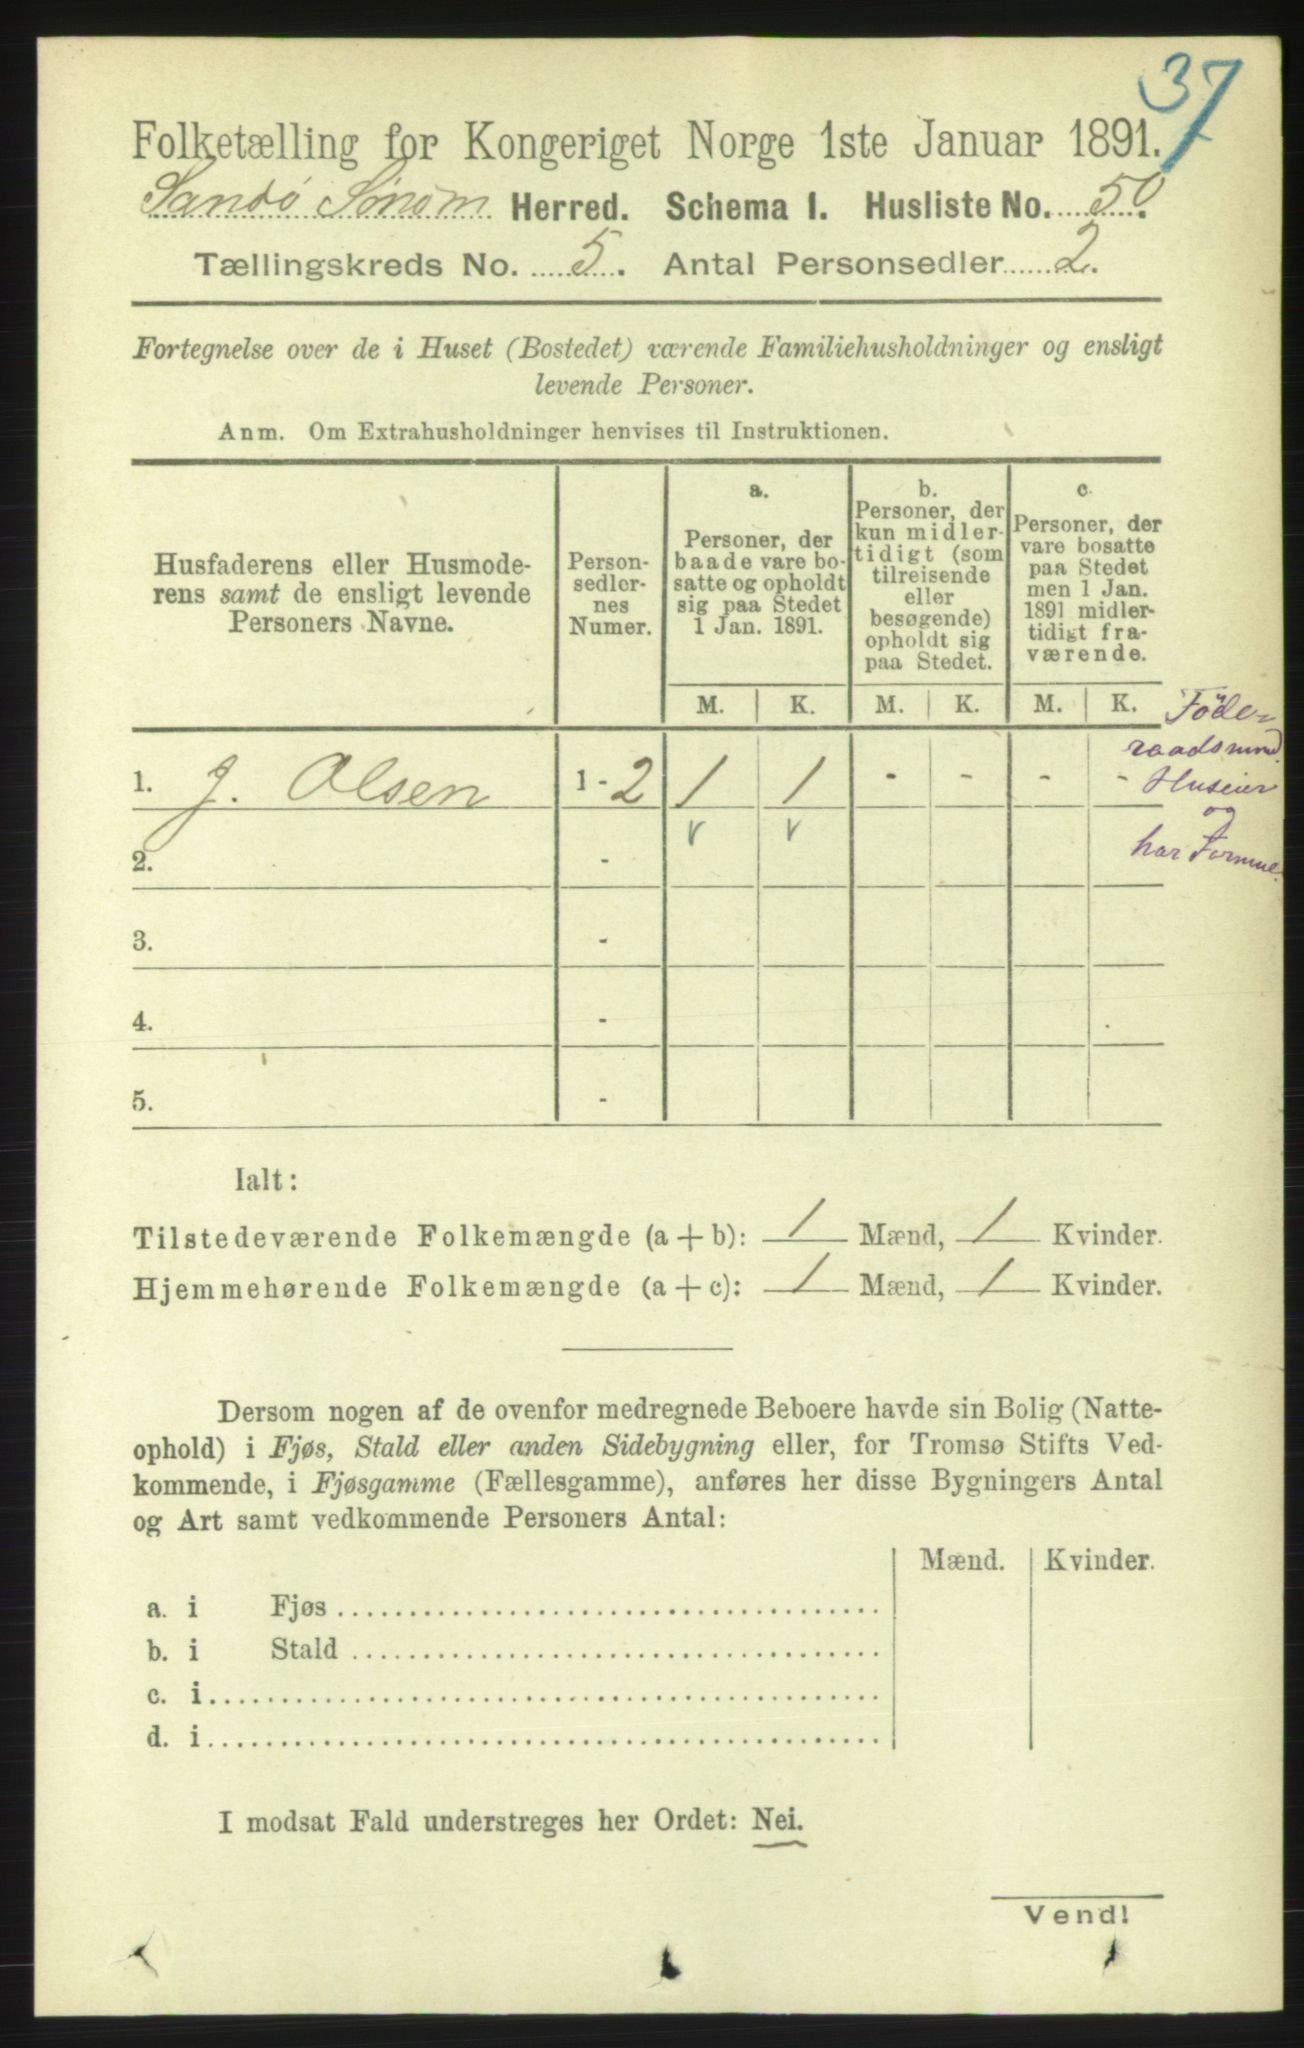 37
Folketælling for Kongeriget Norge 1ste Januar 1891.
Sandø Sønom Herred. Schema I. Husliste No. 50.
Tællingskreds No. 5. Antal Personsedler 2.
Fortegnelse over de i Huset (Bostedet) værende Familiehusholdninger og ensligt
levende Personer.
Anm. Om Extrahusholdninger henvises til Instruktionen.
Husfaderens eller Husmode-
rens samt de ensligt levende
Personers Navne.
Person-
sedler-
nes
Numer.
a.
Personer, der
baade vare bo-
satte og opholdt
sig paa Stedet
1 Jan. 1891.
b.
Personer, der
kun midler-
tidigt (som
tilreisende
eller
besøgende)
opholdt sig
paa Stedet.
c.
Personer, der
vare bosatte
paa Stedet
men 1 Jan.
1891 midler-
tidigt fra-
værende.
M. K. M. K. M. K.
Föde-
raadsmnd.
Huseier
og
har Formue.
1. J. Olsen 1 - 2 1 1 - - - -
v v
2. -
3. -
4. -
5. -
Ialt:
Tilstedeværende Folkemængde (a + b): 1 Mænd, 1 Kvinder.
Hjemmehørende Folkemængde (a + c): 1 Mænd, 1 Kvinder.
Dersom nogen af de ovenfor medregnede Beboere havde sin Bolig (Natte-
ophold) i Fjøs, Stald eller anden Sidebygning eller, for Tromsø Stifts Ved-
kommende, i Fjøsgamme (Fællesgamme), anføres her disse Bygningers Antal
og Art samt vedkommende Personers Antal:
Mænd. Kvinder.
a. i Fjøs
b. i Stald
c. i
d. i
I modsat Fald understreges her Ordet: Nei.
Vend!